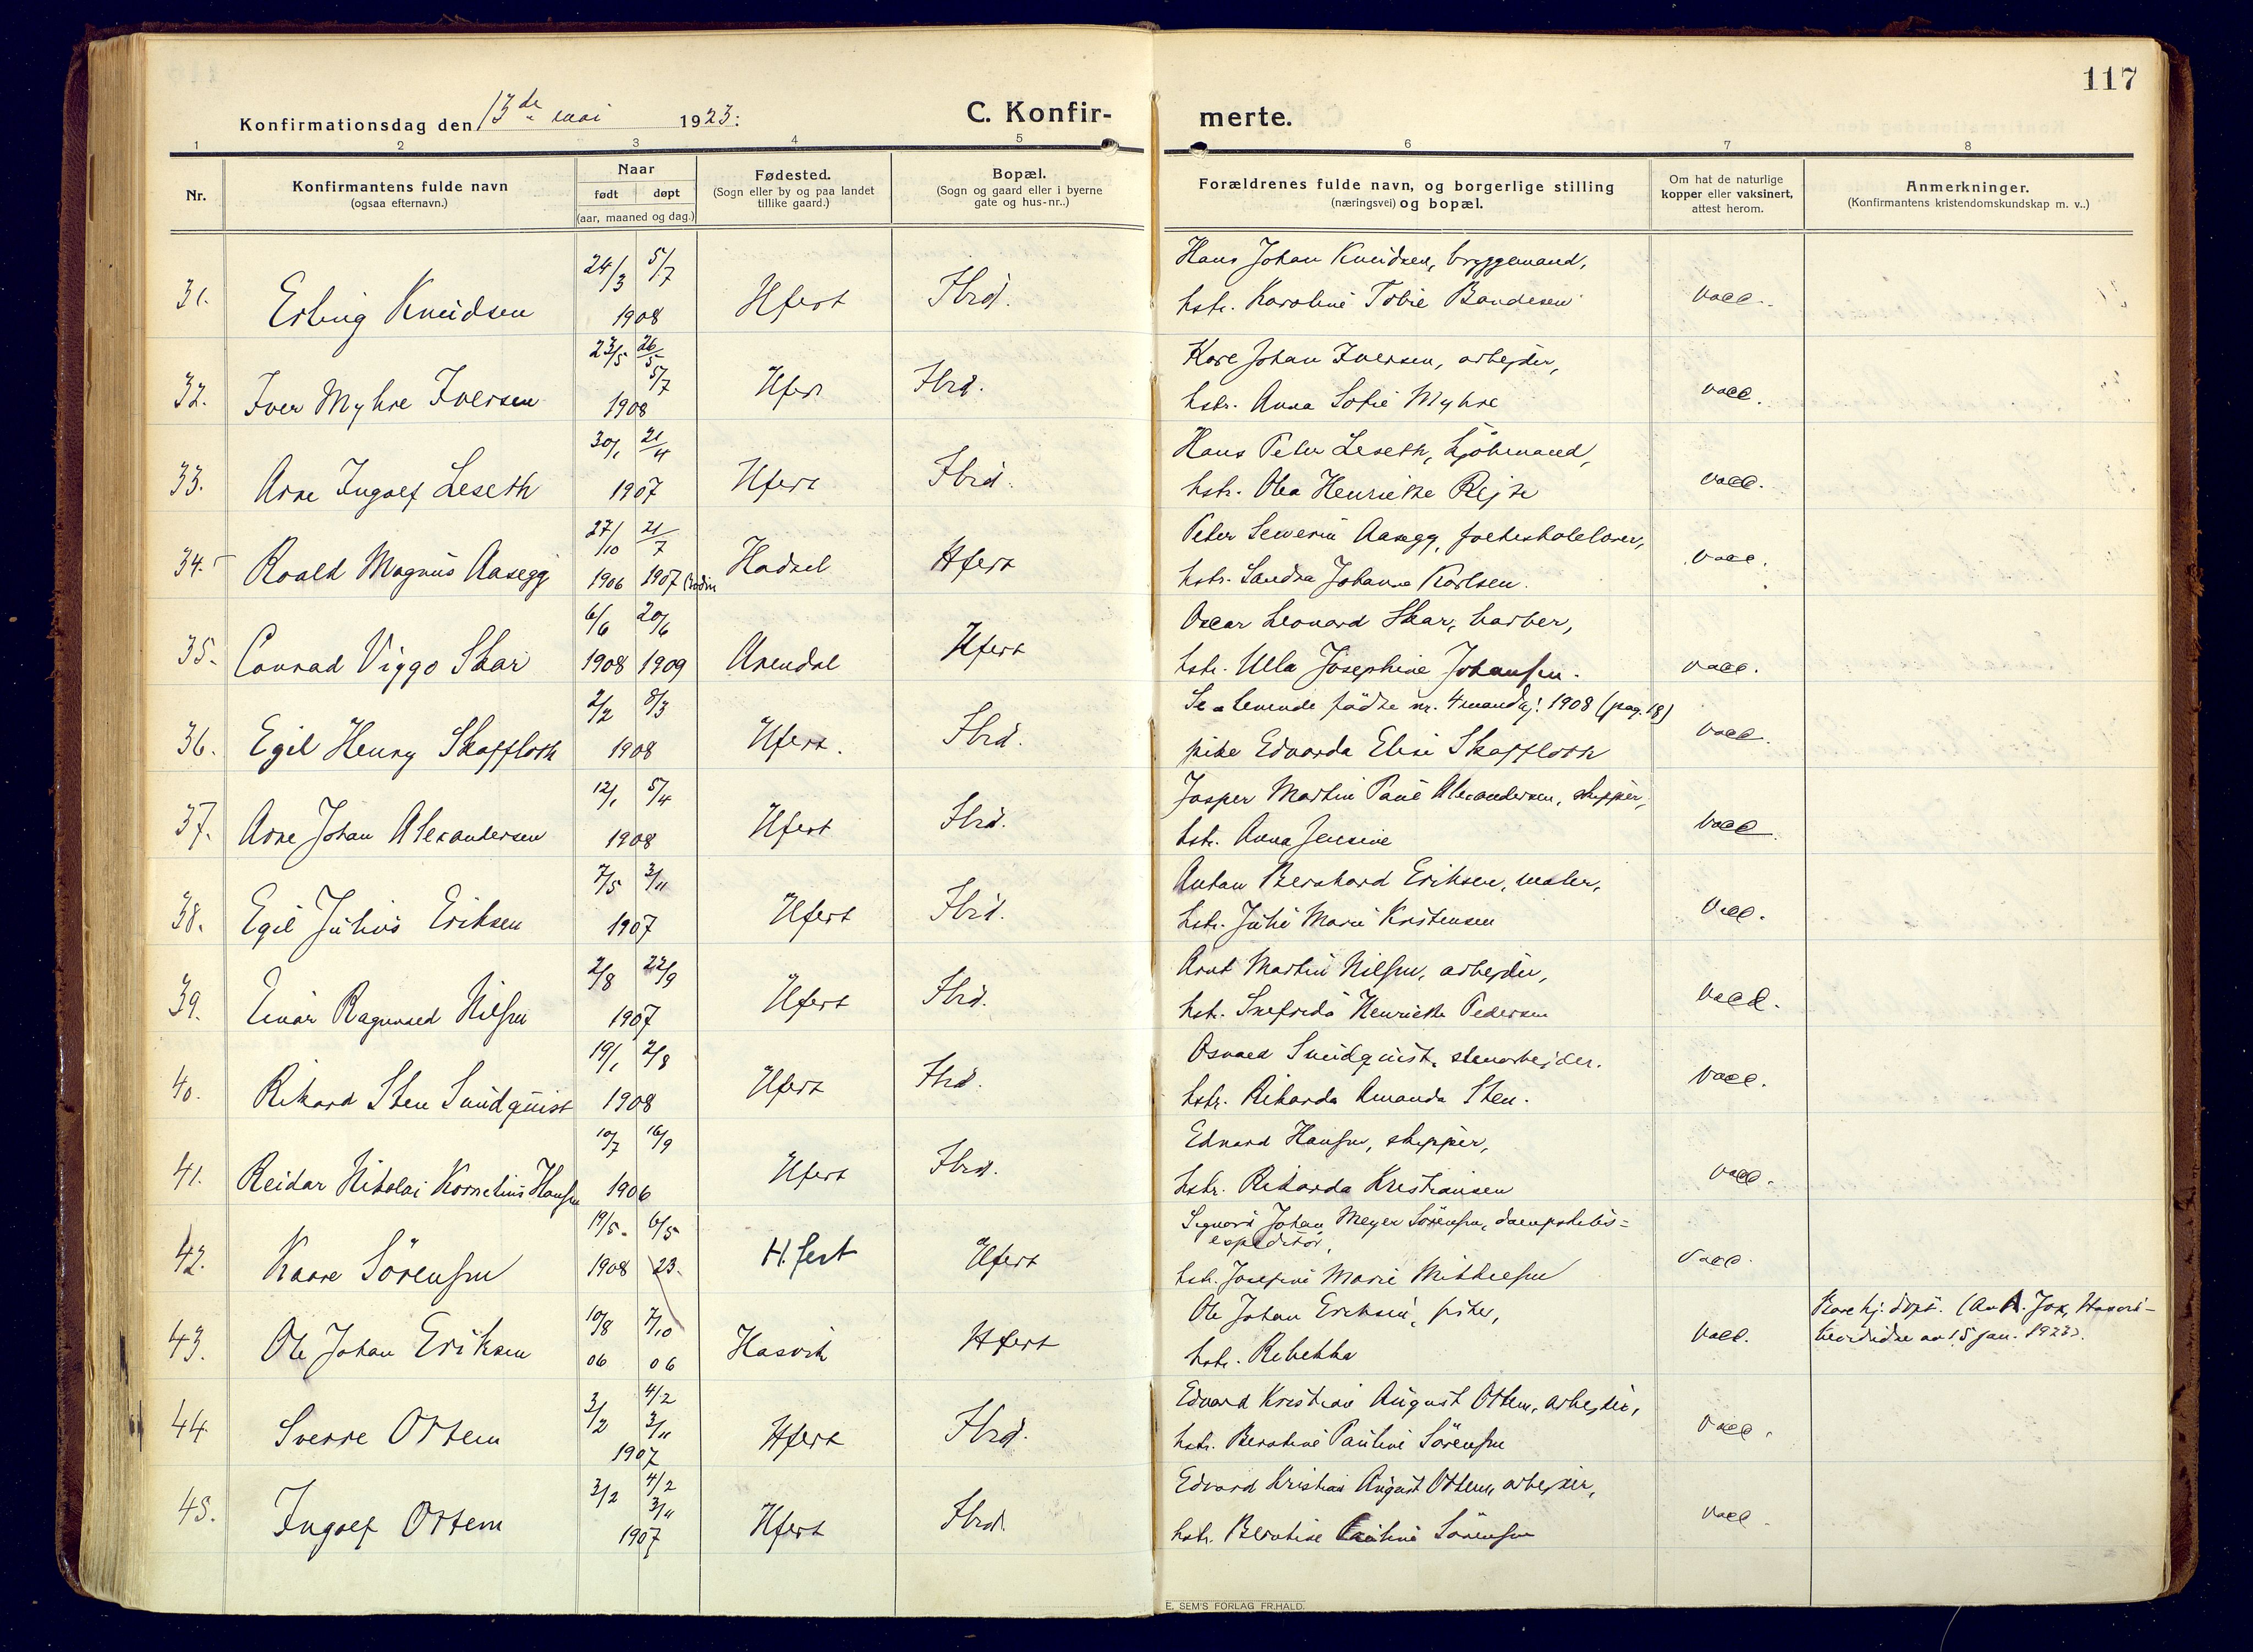 117
Konfirmationsdag den 13de mai 1923. C. Konfir- merte.
1 2 3 4 5 6 7 8
Nr.
Konfirmantens fulde navn
(ogsaa efternavn.)
Naar
født døpt
(aar, maaned og dag.)
Fødested.
(Sogn eller by og paa landet
tillike gaard.)
Bopæl.
(Sogn og gaard eller i byerne
gate og hus-nr..)
Forældrenes fulde navn, og borgerlige stilling
(næringsvei) og bopæl.
Om hat de naturlige
kopper eller vaksinert,
attest herom.
Anmerkninger.
(Konfirmantens kristendomskundskap m. v..)
24/3 5/7 Hans Johan Knudsen, bryggemand,
31. Erling Knudsen 1908 Hfest Fbrd. hstr. Karoline Tobie vacc.
23/5 26/5 5/7 Kare Johan Iversen, arbejder,
32. Iver Myhre Iversen 1908 Hfest Fbrd. hstr. Anna Sofie Myhre vacc.
30/1 21/4 Hans Peter Leseth, sjömand,
33. Arne Ingolf Leseth 1907 Hfest Fbrd. hstr. Olea Henrikke vacc.
27/10 21/7 Peter Severin Aasegg,
34. Roald Magnus Aasegg 1906 1907 Hadsel Hfest hstr. Sandra Johanna Karlsen. vacc.
6/6 20/6 Oscar Leonard Skar, barber,
35. Conrad Viggo Skar 1908 1909 Arendal Hfest hstr. Ulla Josephine Johansen. vacc.
2/2 8/3 Se levende födte nr. 4 mandkj. 1908 (pag. 18)
36. Egil Henry Skaffloth 1908 Hfest. Fbrd. pike Edvarda Elise Skaffloth vacc.
12/1 5/4 Jasper Martin Paul Alexandersen, skipper,
37. Arne Johan Alexandersen 1908 Hfest Fbrd. hstr. Anna Jensine vacc.
7/5 3/11 Anton Bernhard Eriksen, maler,
38. Egil Julius Eriksen 1907 Hfest Fbrd. hstr. Julie Marie Kristensen vacc.
2/8 22/9 Arnt Martin Nilsen, arbejder,
39. Einar Ragnvald Nilsen 1907 Hfest Fbrd. hstr. Snefrida Henrikke Pedersen vacc.
19/1 2/8 Osvald Sundquist, stenarbejder.
40. Rikard Sten Sundquist 1908 Hfest Fbrd. hstr. Rikarda Amanda Sten. vacc.
10/7 16/9 Edvard Hansen, skipper,
41. Reidar Nikolai Kornelius Hansen 1906 Hfest Fbrd. hstr. Rikarda Kristiansen vacc.
19/5. 6/5 Johan Meyer Sörensen, dampskibs=
expeditör,
42. Kaare Sörensen 1908 23. H.fest Hfest hstr. Josefine Marie Mikkelsen vacc.
10/8 7/10 Ole Johan Eriksen, fisker, Bare hj. döpt.
43. Ole Johan Eriksen 06 06 Hasvik Hfest hstr. Rebekka vacc. av 15 jan. 1923).
3/2 4/2 3/11 Edvard Kristian August Ottem, arbejder,
44. Sverre Ottem 1907 Hfest Fbrd. hstr. Berntine Pauline Sörensen vacc.
3/2 4/2 3/11 Edvard Kristian August Ottem, arbejder,
45. Ingolf Ottem 1907 Hfest Fbrd. hstr. Berntine Pauline Sörensen vacc.
E. SEM'S FORLAG FR.HALD.